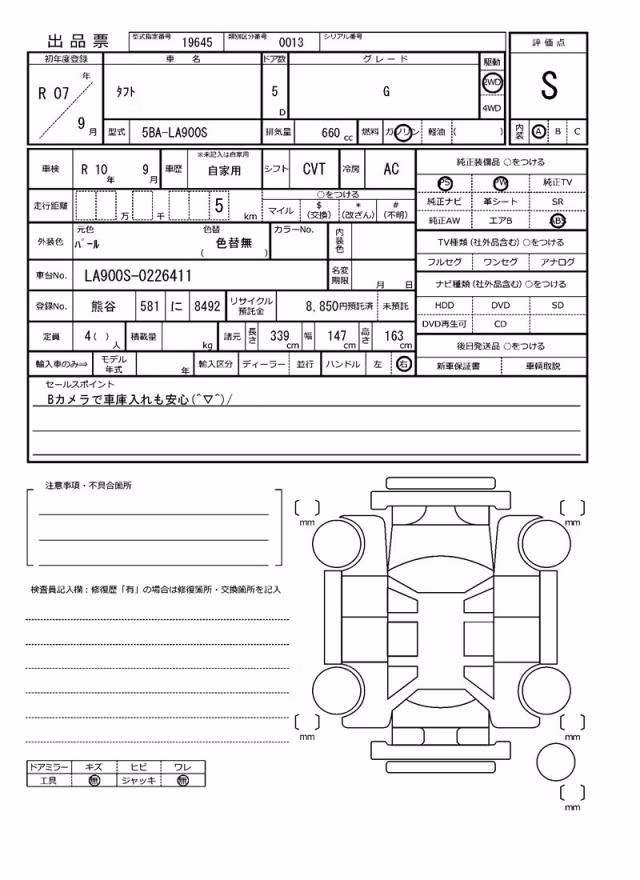 出品票 型式指定番号 19645 類別区分番号 0013 シリアル番号
初年度登録 車名 ドア数 グレード 駆動 評価点
R 07 年 9 月 タフト 5 D G 2WD 4WD S
型式 5BA-LA900S 排気量 660 cc 燃料 ガソリン 軽油 ( ) 内装 A B C
車検 R 10 年 9 月 車歴 ※未記入は自家用 自家用 シフト CVT 冷房 AC 純正装備品 ○をつける
PS PW 純正TV
走行距離 万 千 5 km ○をつける 純正ナビ 革シート SR
マイル $(交換) *(改ざん) #(不明) 純正AW エアB ABS
外装色 元色 パール 色替 色替無 ( ) カラーNo. 内装色 TV種類(社外品含む)○をつける
フルセグ ワンセグ アナログ
車台No. LA900S-0226411 名変期限 月 日 ナビ種類(社外品含む)○をつける
登録No. 熊谷 581 に 8492 リサイクル預託金 8,850円預託済 未預託 HDD DVD SD
DVD再生可 CD
定員 4( ) 人 積載量 kg 諸元 長さ 339 cm 幅 147 cm 高さ 163 cm 後日発送品 ○をつける
輸入車のみ⇒ モデル年式 年 輸入区分 ディーラー 並行 ハンドル 左 右 新車保証書 車輌取説
セールスポイント
Bカメラで車庫入れも安心(^▽^)/
注意事項・不具合箇所
mm mm
検査員記入欄：修復歴「有」の場合は修復箇所・交換箇所を記入
mm mm
ドアミラー キズ ヒビ ワレ
工具 無 ジャッキ 無
mm